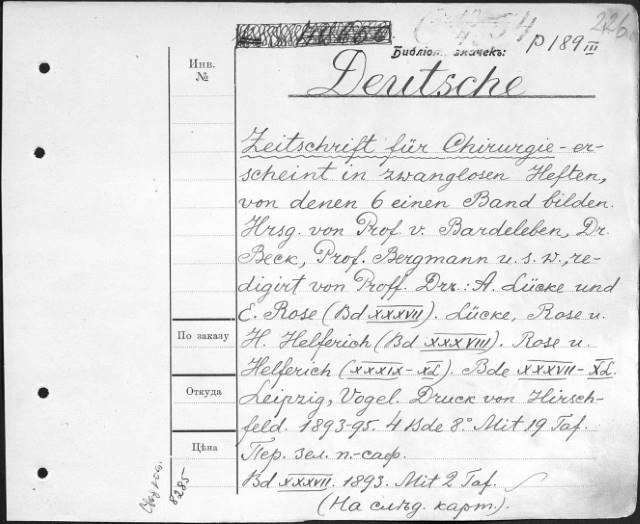 226
Библіот. значекъ: P 189 III
Инв.
№
Deutsche
Zeitschrift für Chirurgie - er-
scheint in zwanglosen Heften,
von denen 6 einen Band bilden.
Hrsg. von Prof v. Bardeleben, Dr.
Beck, Prof. Bergmann u. s. w., re-
digirt von Proff. Drr.: A. Lücke und
E. Rose (Bd XXXVII). Lücke, Rose u.
По заказу
H. Helferich (Bd XXXVIII). Rose u.
Helferich (XXXIX-XL). Bde XXXVII-XL.
Откуда
Leipzig, Vogel. Druck von Hirsch-
feld. 1893-95. 4 Bde 8° Mit 19 Taf.
Цѣна
Пер. зел. п.-саф.
Bd XXXVII. 1893. Mit 2 Taf.
(На слѣд. карт.).
8285